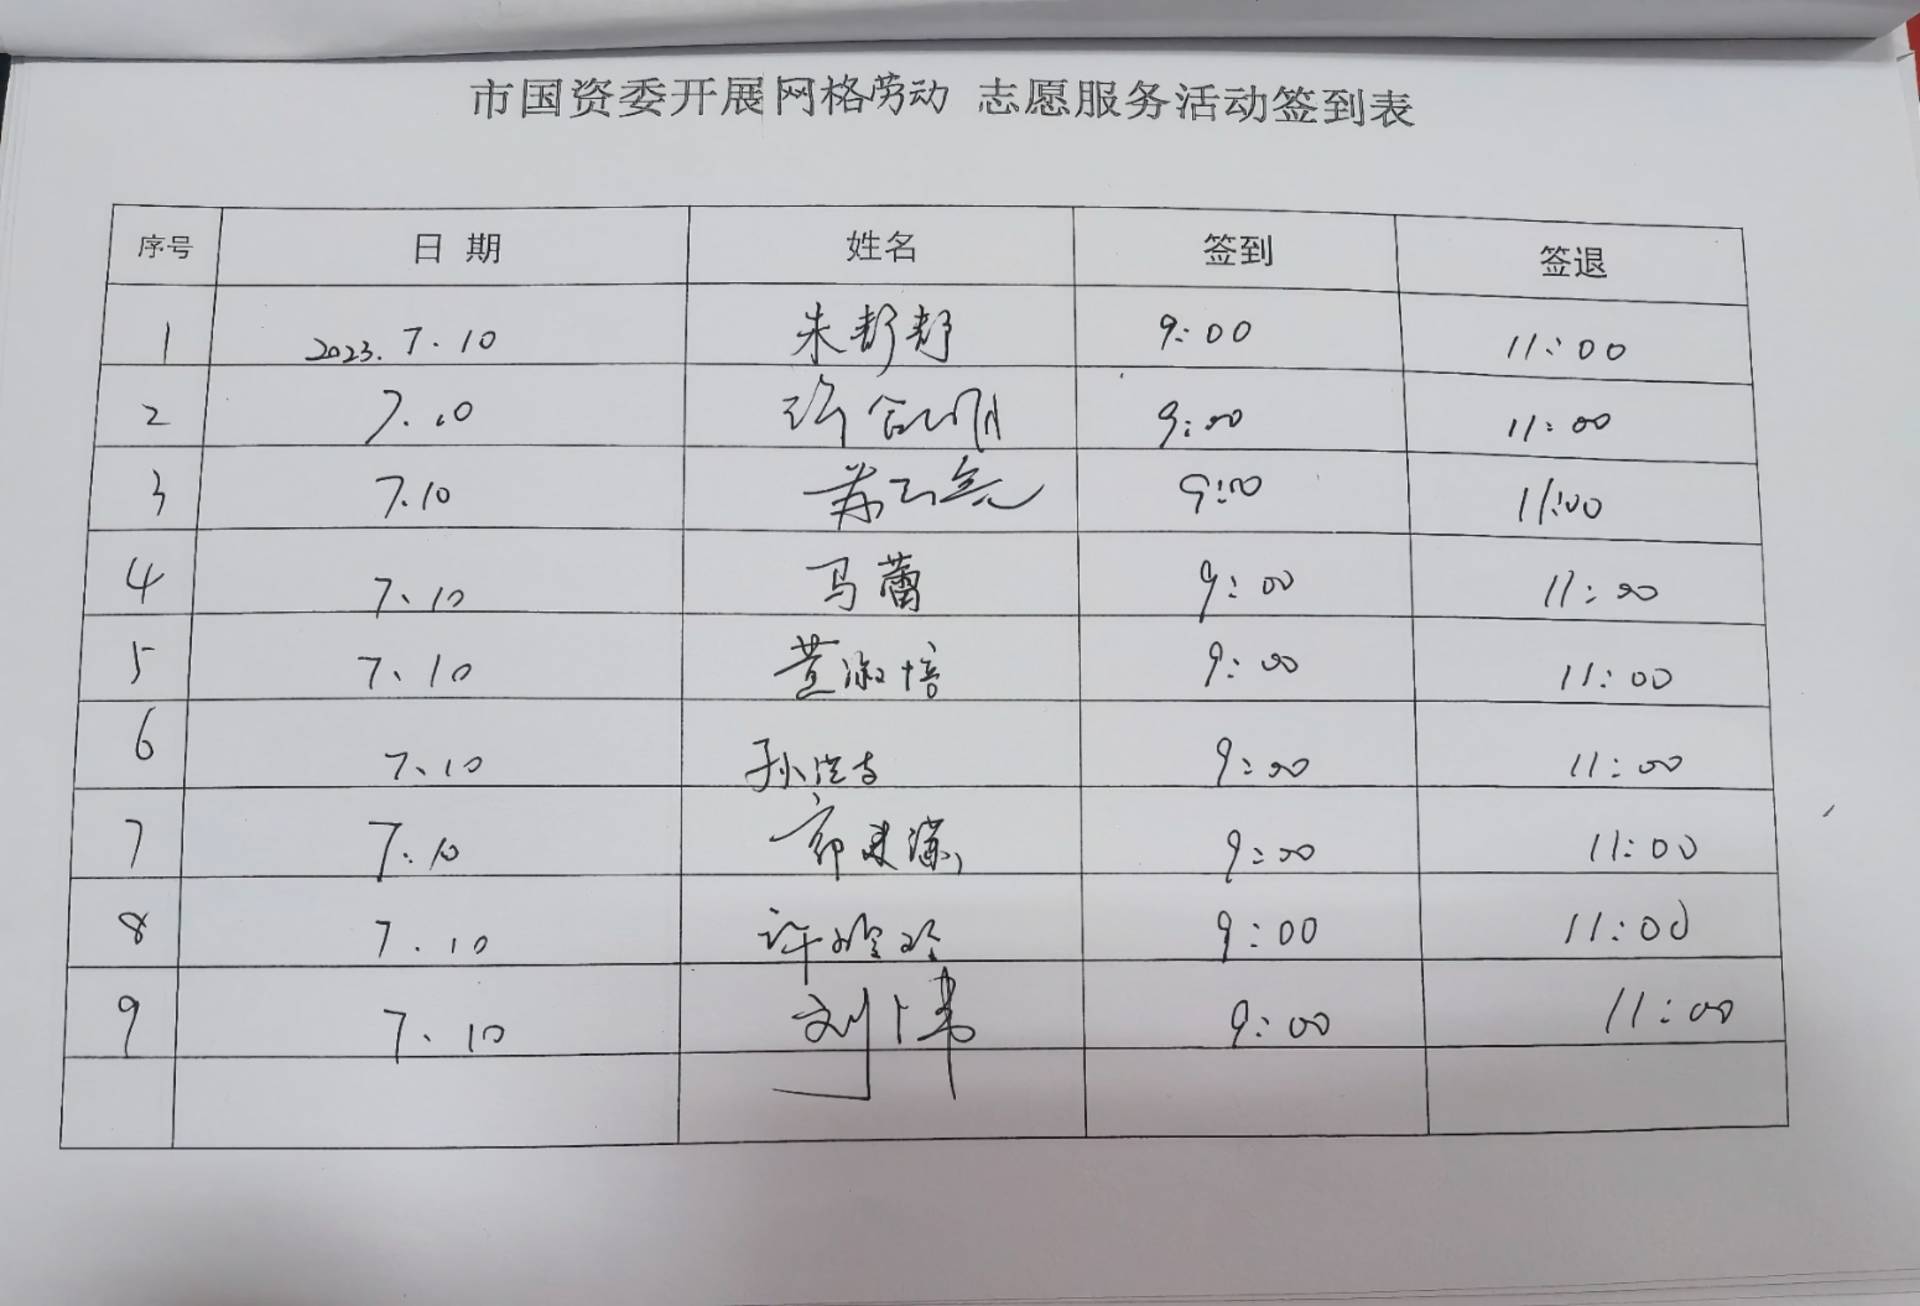 市国资委开展网格劳动 志愿服务活动签到表
序号 日期 姓名 签到 签退
1 2023.7.10 朱舒舒 9:00 11:00
2 7.10 许 9:00 11:00
3 7.10 9:00 11:00
4 7.10 马蕾 9:00 11:00
5 7.10 黄淑培 9:00 11:00
6 7.10 孙 9:00 11:00
7 7.10 郭 9:00 11:00
8 7.10 许 9:00 11:00
9 7.10 刘伟 9:00 11:00